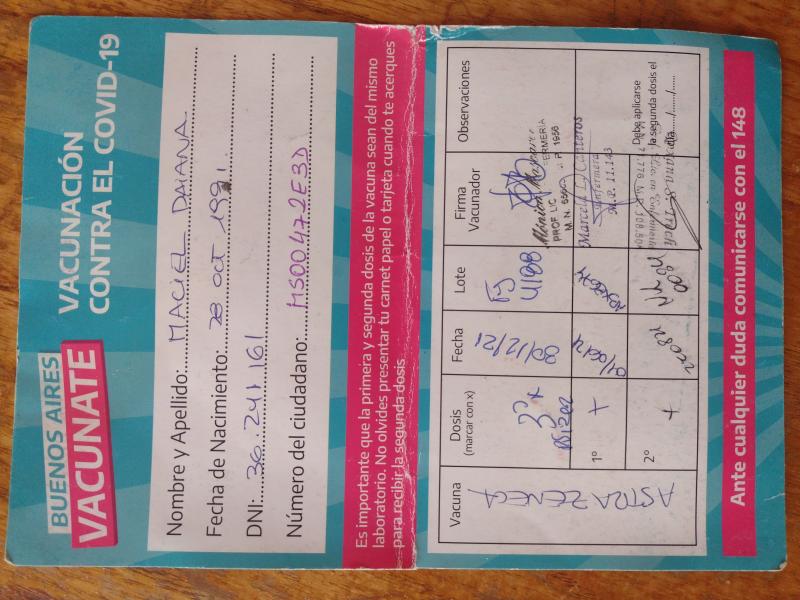 BUENOS AIRES
VACUNATE
VACUNACIÓN
CONTRA EL COVID-19
Nombre y Apellido: MACIEL DAIANA
Fecha de Nacimiento: 28 OCT 1991
DNI: 36.241161
Número del ciudadano: MS00472E3D
Es importante que la primera y segunda dosis de la vacuna sean del mismo
laboratorio. No olvides presentar tu carnet papel o tarjeta cuando te acerques
para recibir la segunda dosis
Vacuna
Dosis
(marcar con x)
Fecha
Lote
Firma
Vacunador
Observaciones
ASTRA ZENECA
3° +
30/12/21
PROF LIC ERMERIA
1º +
Marcela
Enfermera
M.P. 11.143
2º +
Debe aplicarse
la segunda dosis el
día....../....../......
Ante cualquier duda comunicarse con el 148